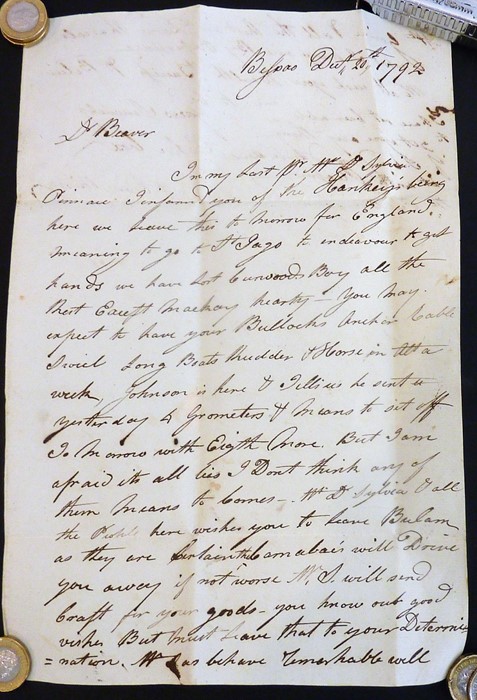 Bissao Decr. 20th 1792
Dr Beaver
In my last pr. Mr. Dr Sylvia
Pinnace I informd you of the Hankeys being
here we leave this to morrow for England,
meaning to go to St Jago to endeavour to get
hands we have lost Curwoods Boy all the
Rest Except Mackay hearty – you may
expect to have your Bullocks Anchor Cable
Swivel Long Boats Rudder & Horse in a
week, Johnson is here & tells us he sent
yesterday 4 Grometers & Means to set off
To Morrow with Eigth More. But I am
afraid its all lies I Dont think any of
them Means to Come – Mr. D. Sylvia & all
the People here wishes you to leave Bulam
as they are certain the Canabais will Drive
you away if not worse Mr. S. will send
Craft for your goods – you know our good
wishes But must leave that to your Determi=
=nation. Mr. behave remarkable well